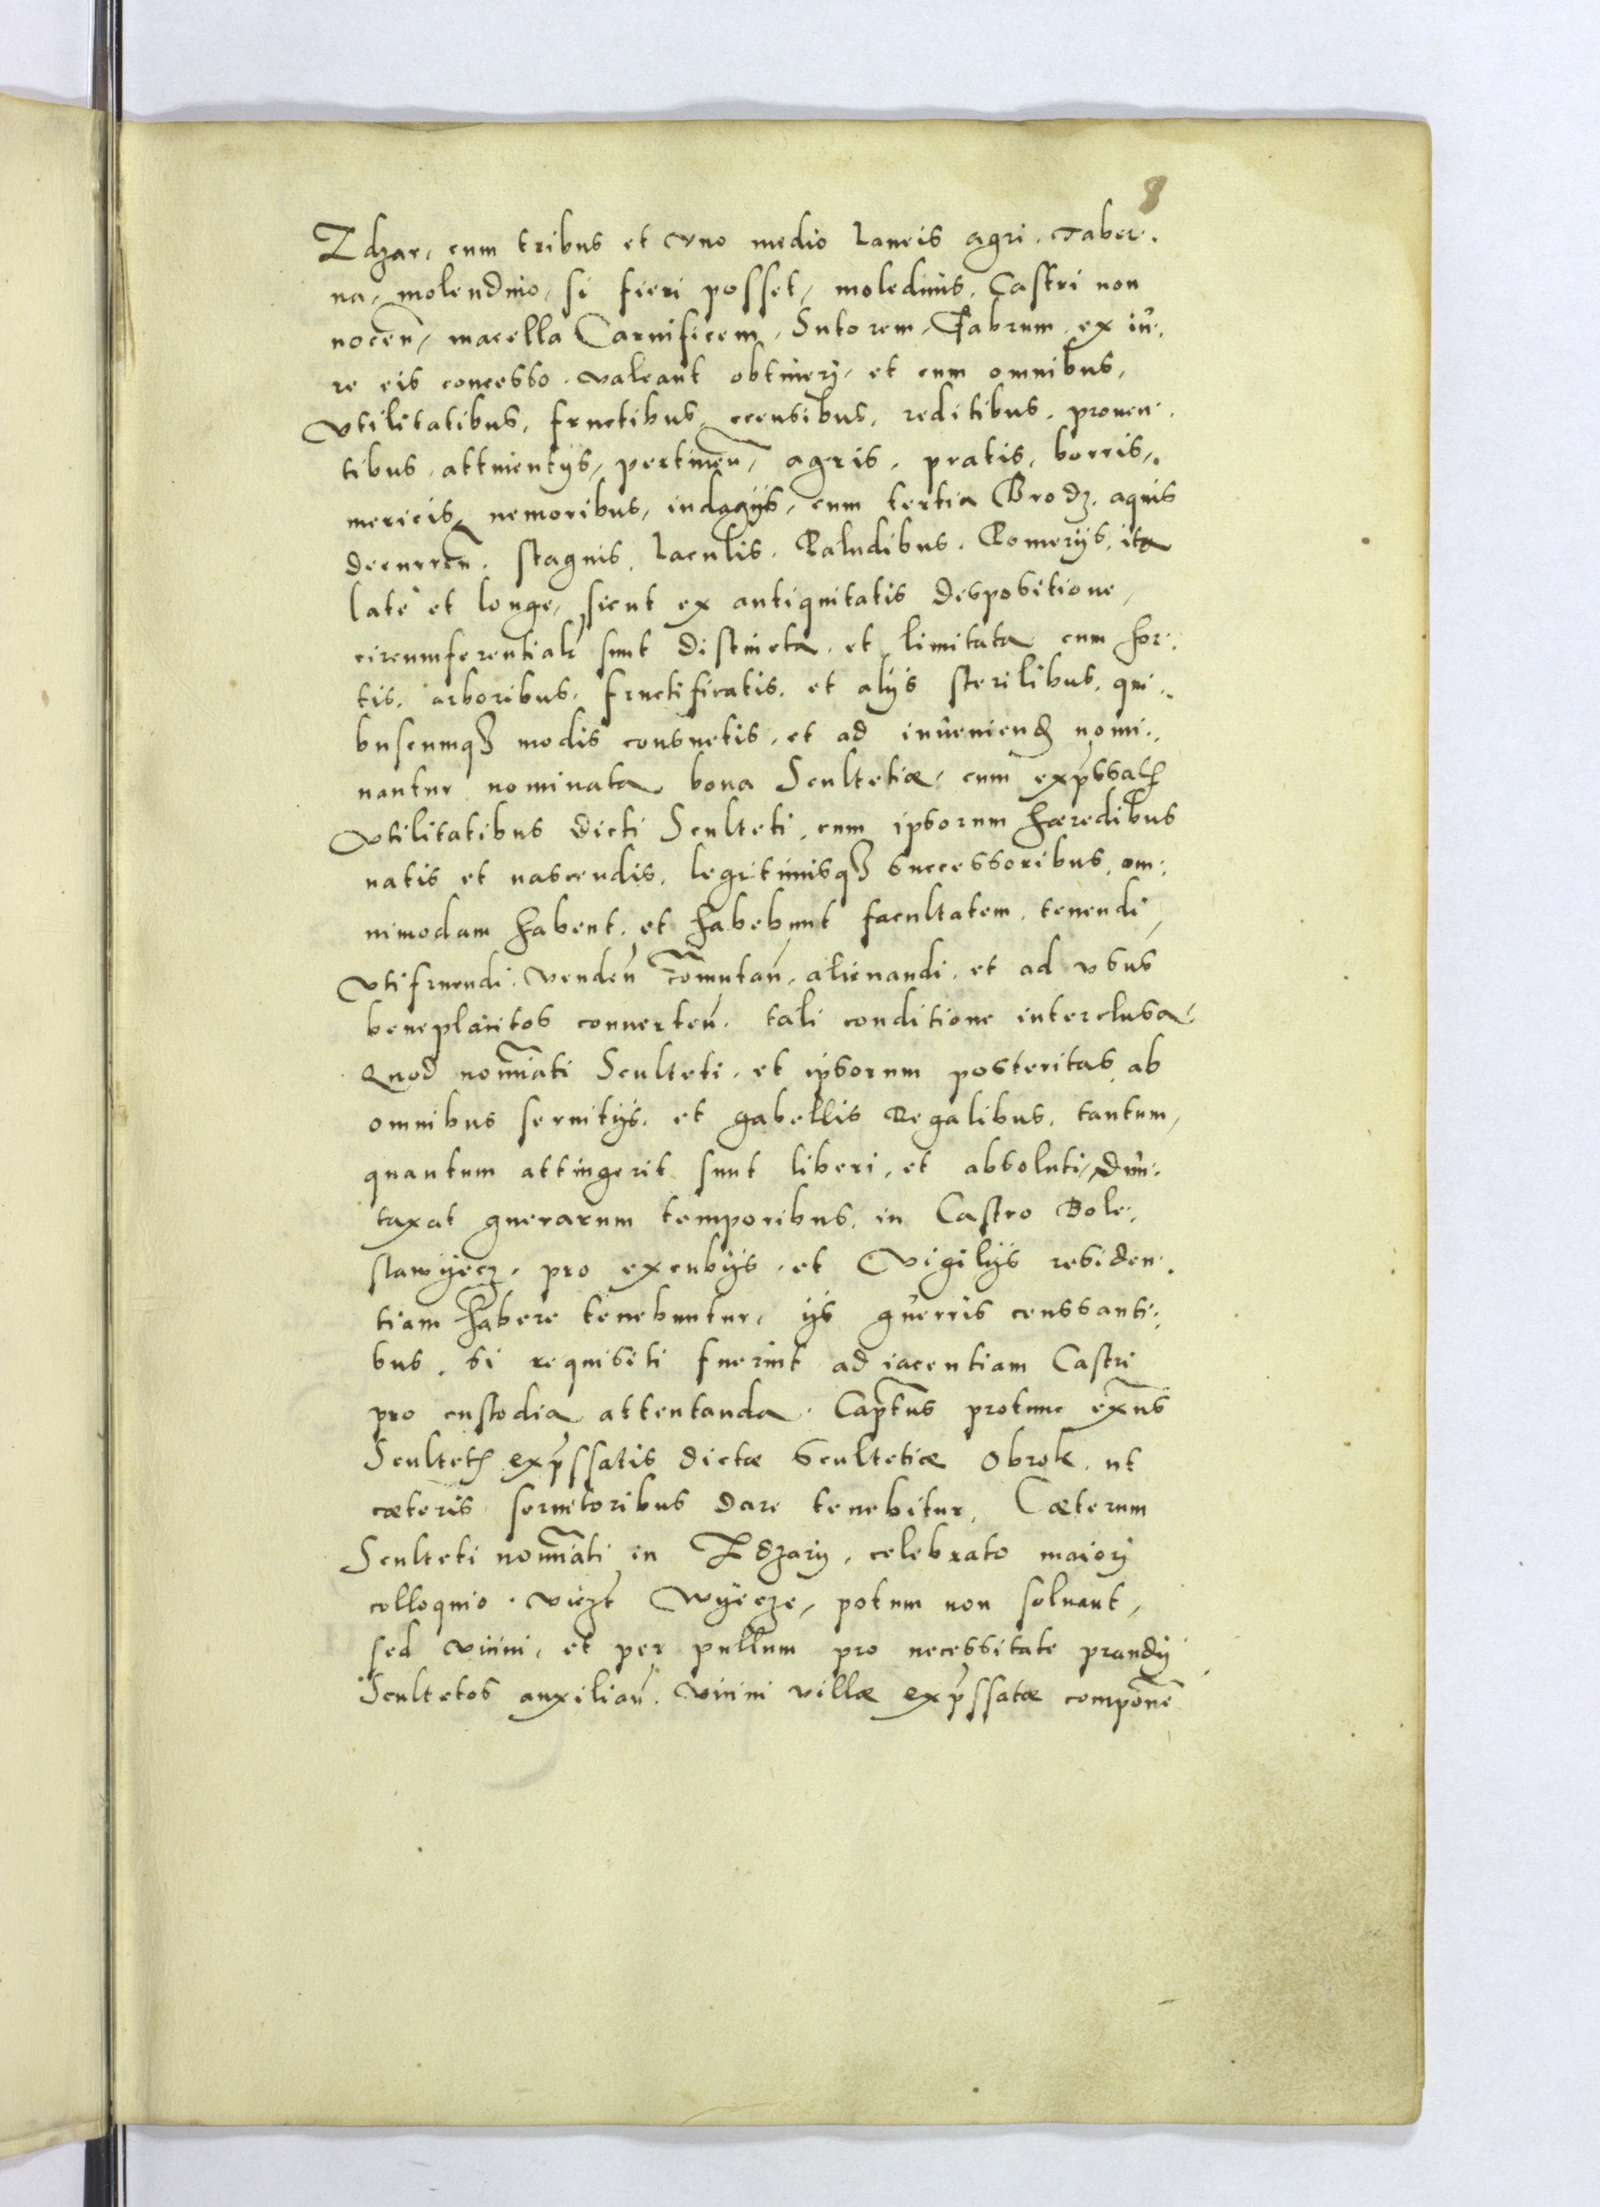 8
Zdzar, cum tribus et vno medio laneis agri. Taber.
na, molendino, si fieri posset, moledinis, Castri non
nocen, macella Carnificem, Sutorem, Fabrum, ex iu.
re eis concesso. valeant obtinerj, et cum omnibus,
vtilitatibus, fructibus, ccensibus, reditibus. prouen.
tibus, attinentijs, pertinen, agris, pratis, borris,
mericis, nemoribus, indagijs, cum tertia Brodz, aquis
decurren. stagnis, laculis, Paludibus. Pomerijs, ita
late et longe, sicut ex antiquitatis despositione,
circumferentiali sunt distincta, et limitata cum hor.
tis, arboribus, fructificatis, et alijs sterilibus, qui.
buscumq3 modis consuetis, et ad inueniend nomi.
nantur nominata bona Scultetiæ, cum expssal
vtilitatibus dicti Sculteti, cum ipsorum hæredibus
natis et nascendis, legitimisq3 successoribus, om.
nimodam habent, et habebunt facultatem, tenendi,
vtifruendi, venden comutan, alienandi, et ad vsus
beneplacitos conuerten. tali conditione interclusa,
Quod nominati Sculteti, et ipsorum posteritas ab
omnibus seruitijs, et gabellis Regalibus, tantum,
quantum attingerit sunt liberi, et absoluti, dun.
taxat guerarum temporibus, in Castro Bole.
stawyecz, pro excubijs, et Vigilijs residen.
tiam habere tenebuntur, ijs guerris censsanti.
bus, si requisiti fuerint ad iacentiam Castri
pro custodia attentanda. Captus protunc exns
Scultetis expssatis dictæ Scultetiæ Obrok, ut
cæteris seruitoribus dare tenebitur, Cæterum
Sculteti nominati in Zdzary, celebrato maiorj
colloquio. viezt Wyecze, potum non soluant,
sed vicini, et per pullum pro necessitate prandij
Scultetos auxilian. vicini villæ expssatæ componere